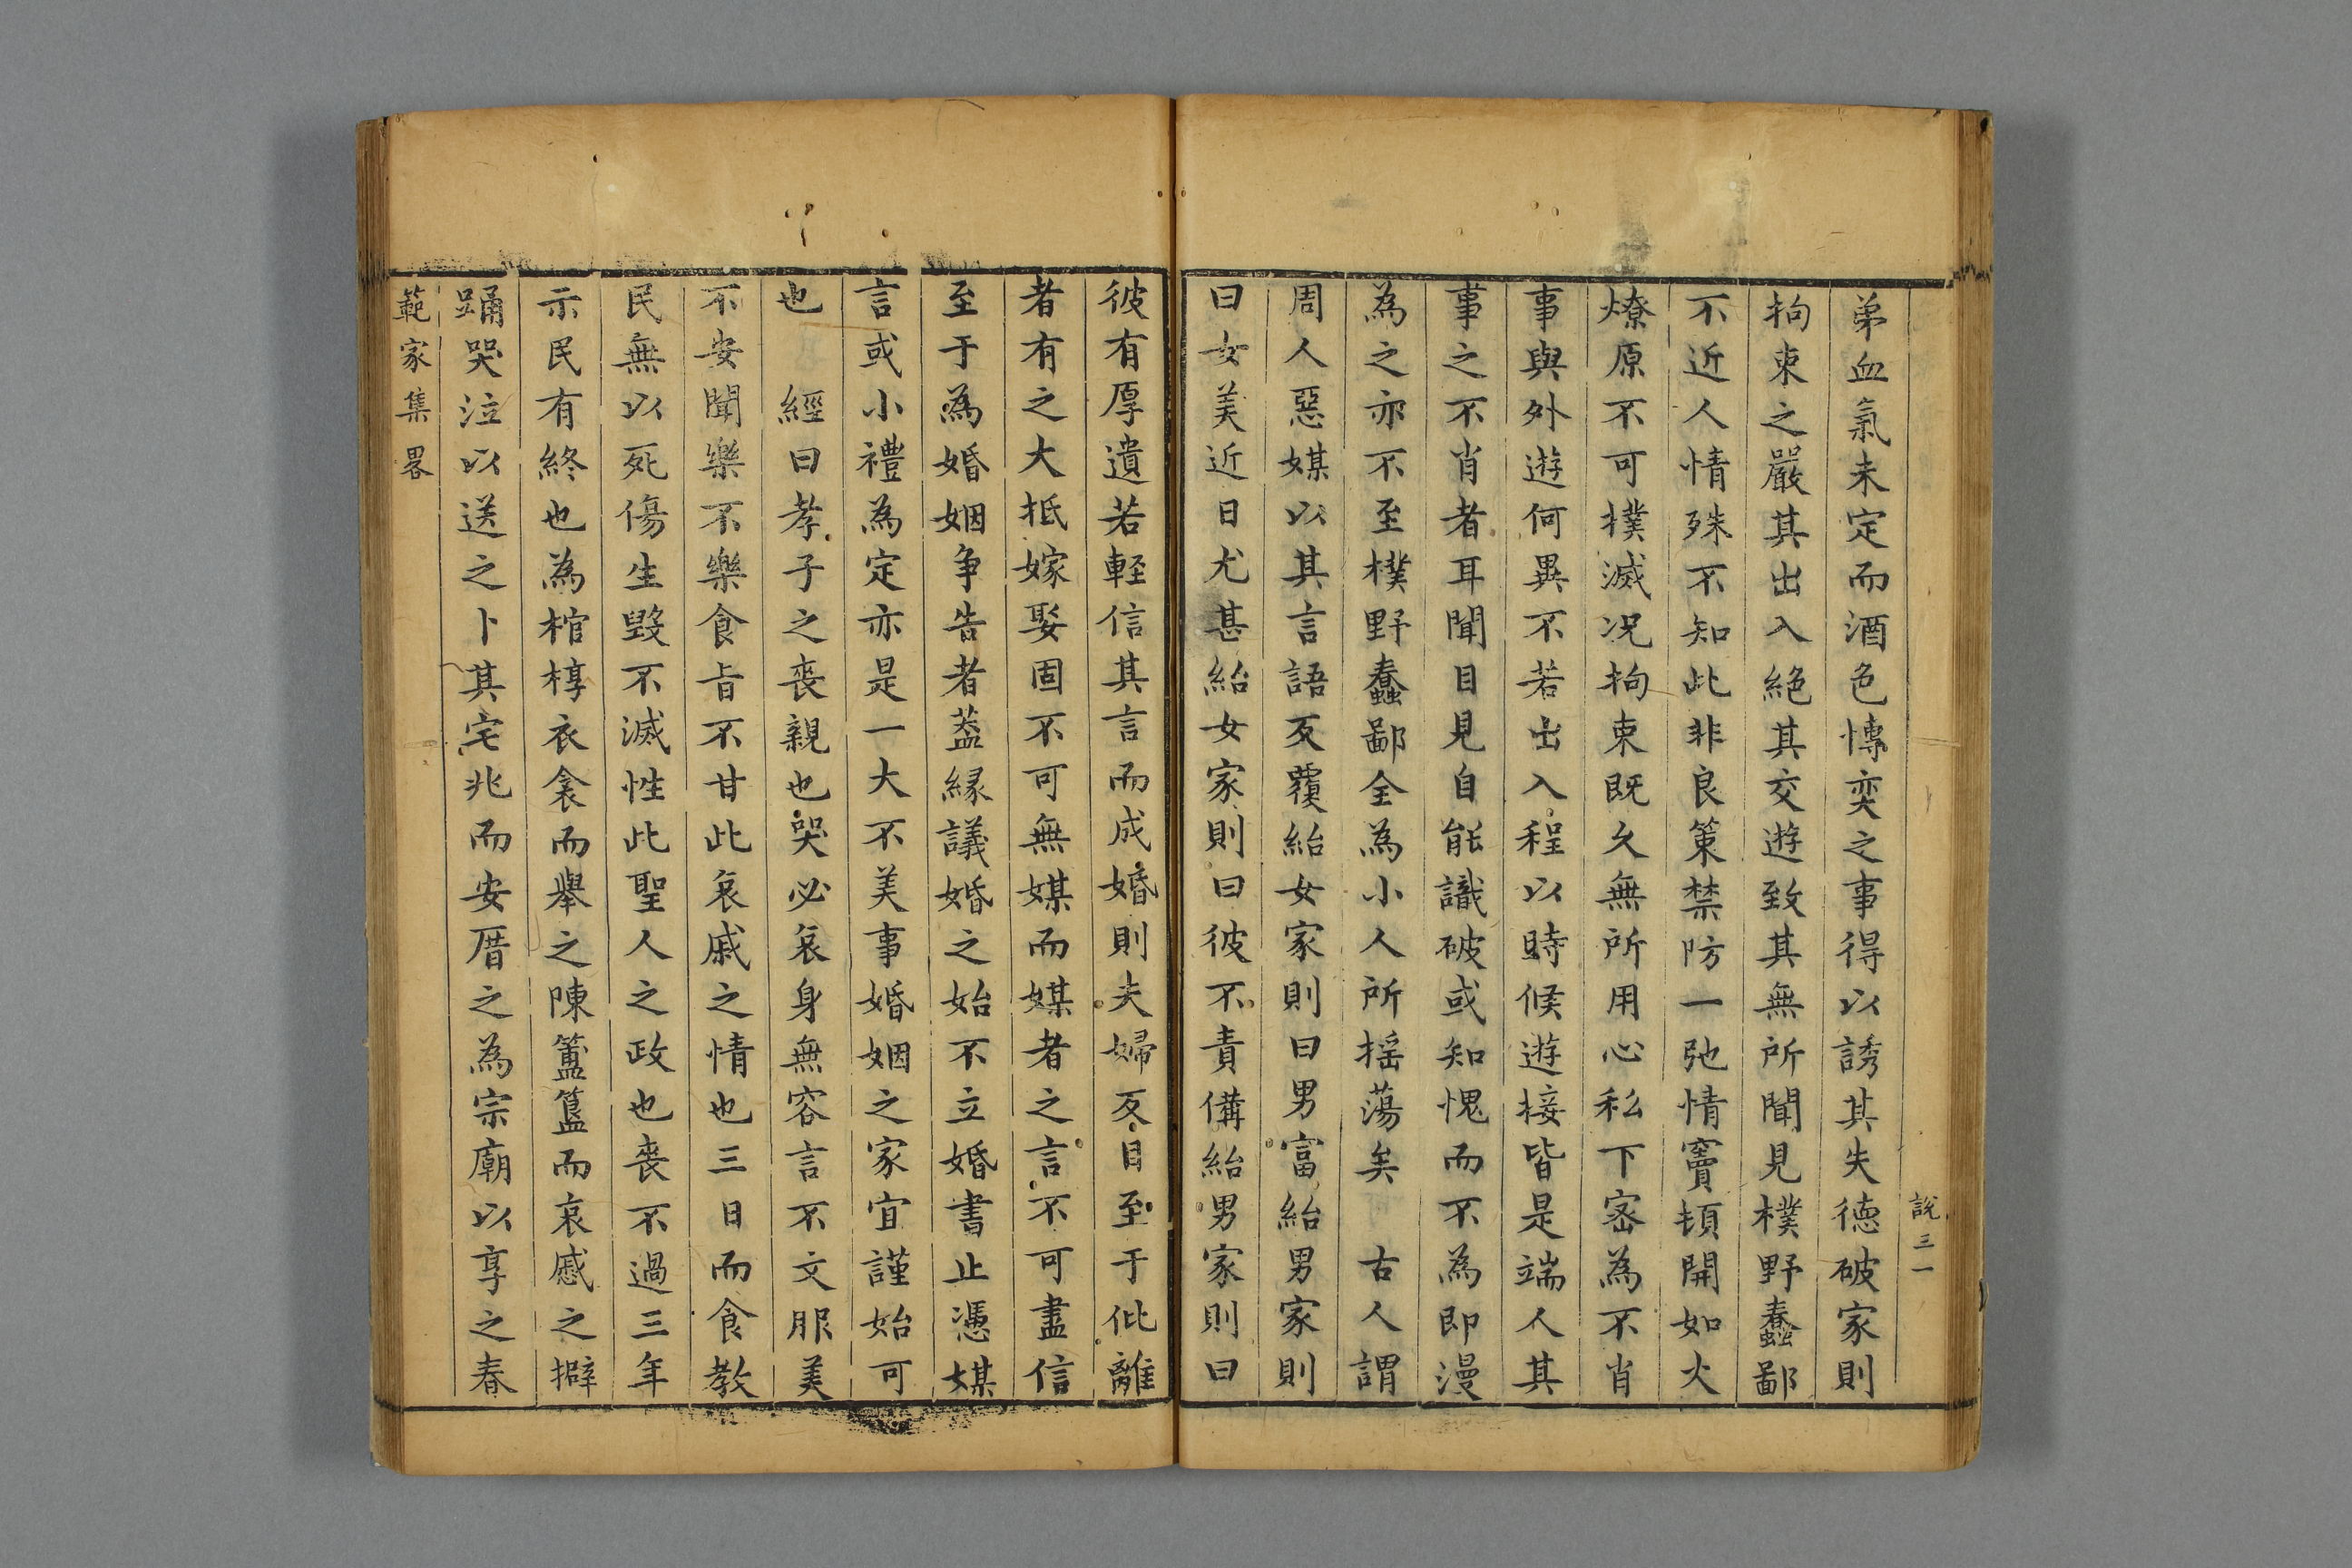 說三一
弟血氣未定而酒色慱奕之事得以誘其失德破家則
拘束之嚴其出入絕其交遊致其無所聞見樸野蠢鄙
不近人情殊不知此非良策禁防一弛情竇頓開如火
燎原不可撲滅况拘束既久無所用心私下宻為不肖
事與外遊何異不若出入程以時候遊接皆是端人其
事之不肖者耳聞目見自能識破或知愧而不為即漫
為之亦不至樸野蠢鄙全為小人所摇蕩矣　古人謂
周人惡媒以其言語反覆紿女家則曰男富紿男家則
曰女美近日尤甚紿女家則曰彼不責備紿男家則曰
彼有厚遺若輕信其言而成婚則夫婦反目至于仳離
者有之大抵嫁娶固不可無媒而媒者之言不可盡信
至于為婚姻争告者葢縁議婚之始不立婚書止憑媒
言或小禮為定亦是一大不美事婚姻之家宜謹始可
也　經曰孝子之喪親也哭必哀身無容言不文服美
不安聞樂不樂食旨不甘此哀戚之情也三日而食教
民無以死傷生毀不滅性此聖人之政也喪不過三年
示民有終也為棺椁衣衾而舉之陳簠簋而哀慼之擗
踊哭泣以送之卜其宅兆而安厝之為宗廟以享之春
範家集畧